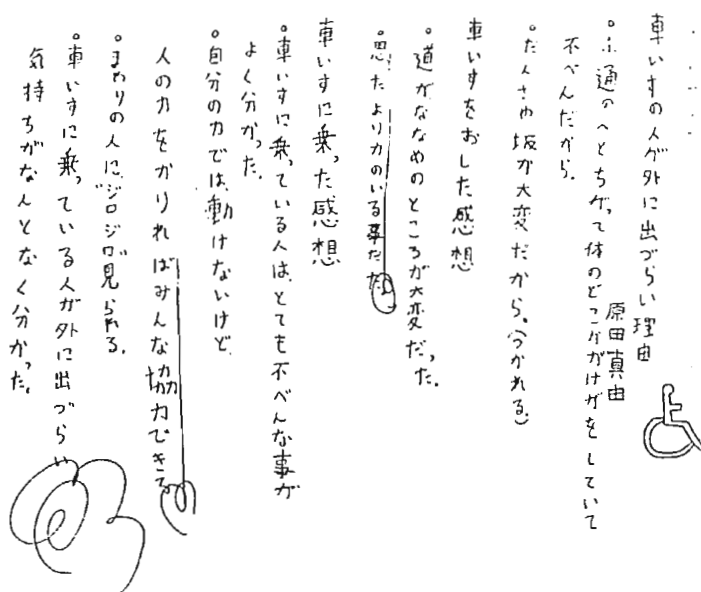 車いすの人が外に出づらい理由
原田真由
。ふ通の人とちがって体のどこかがけがをしていて
不べんだから。
。だんさや坂が大変だから。(つかれる。)
車いすをおした感想
。道がななめのところが大変だった。
。思ったより力のいる事だった。
車いすに乗った感想
。車いすに乗っている人は、とても不べんな事が
よく分かった。
。自分の力では、動けないけど、
人の力をかりればみんな協力できる
。まわりの人に、"ジロジロ"見られる。
。車いすに乗っている人が外に出づらい
気持ちがなんとなく分かった。